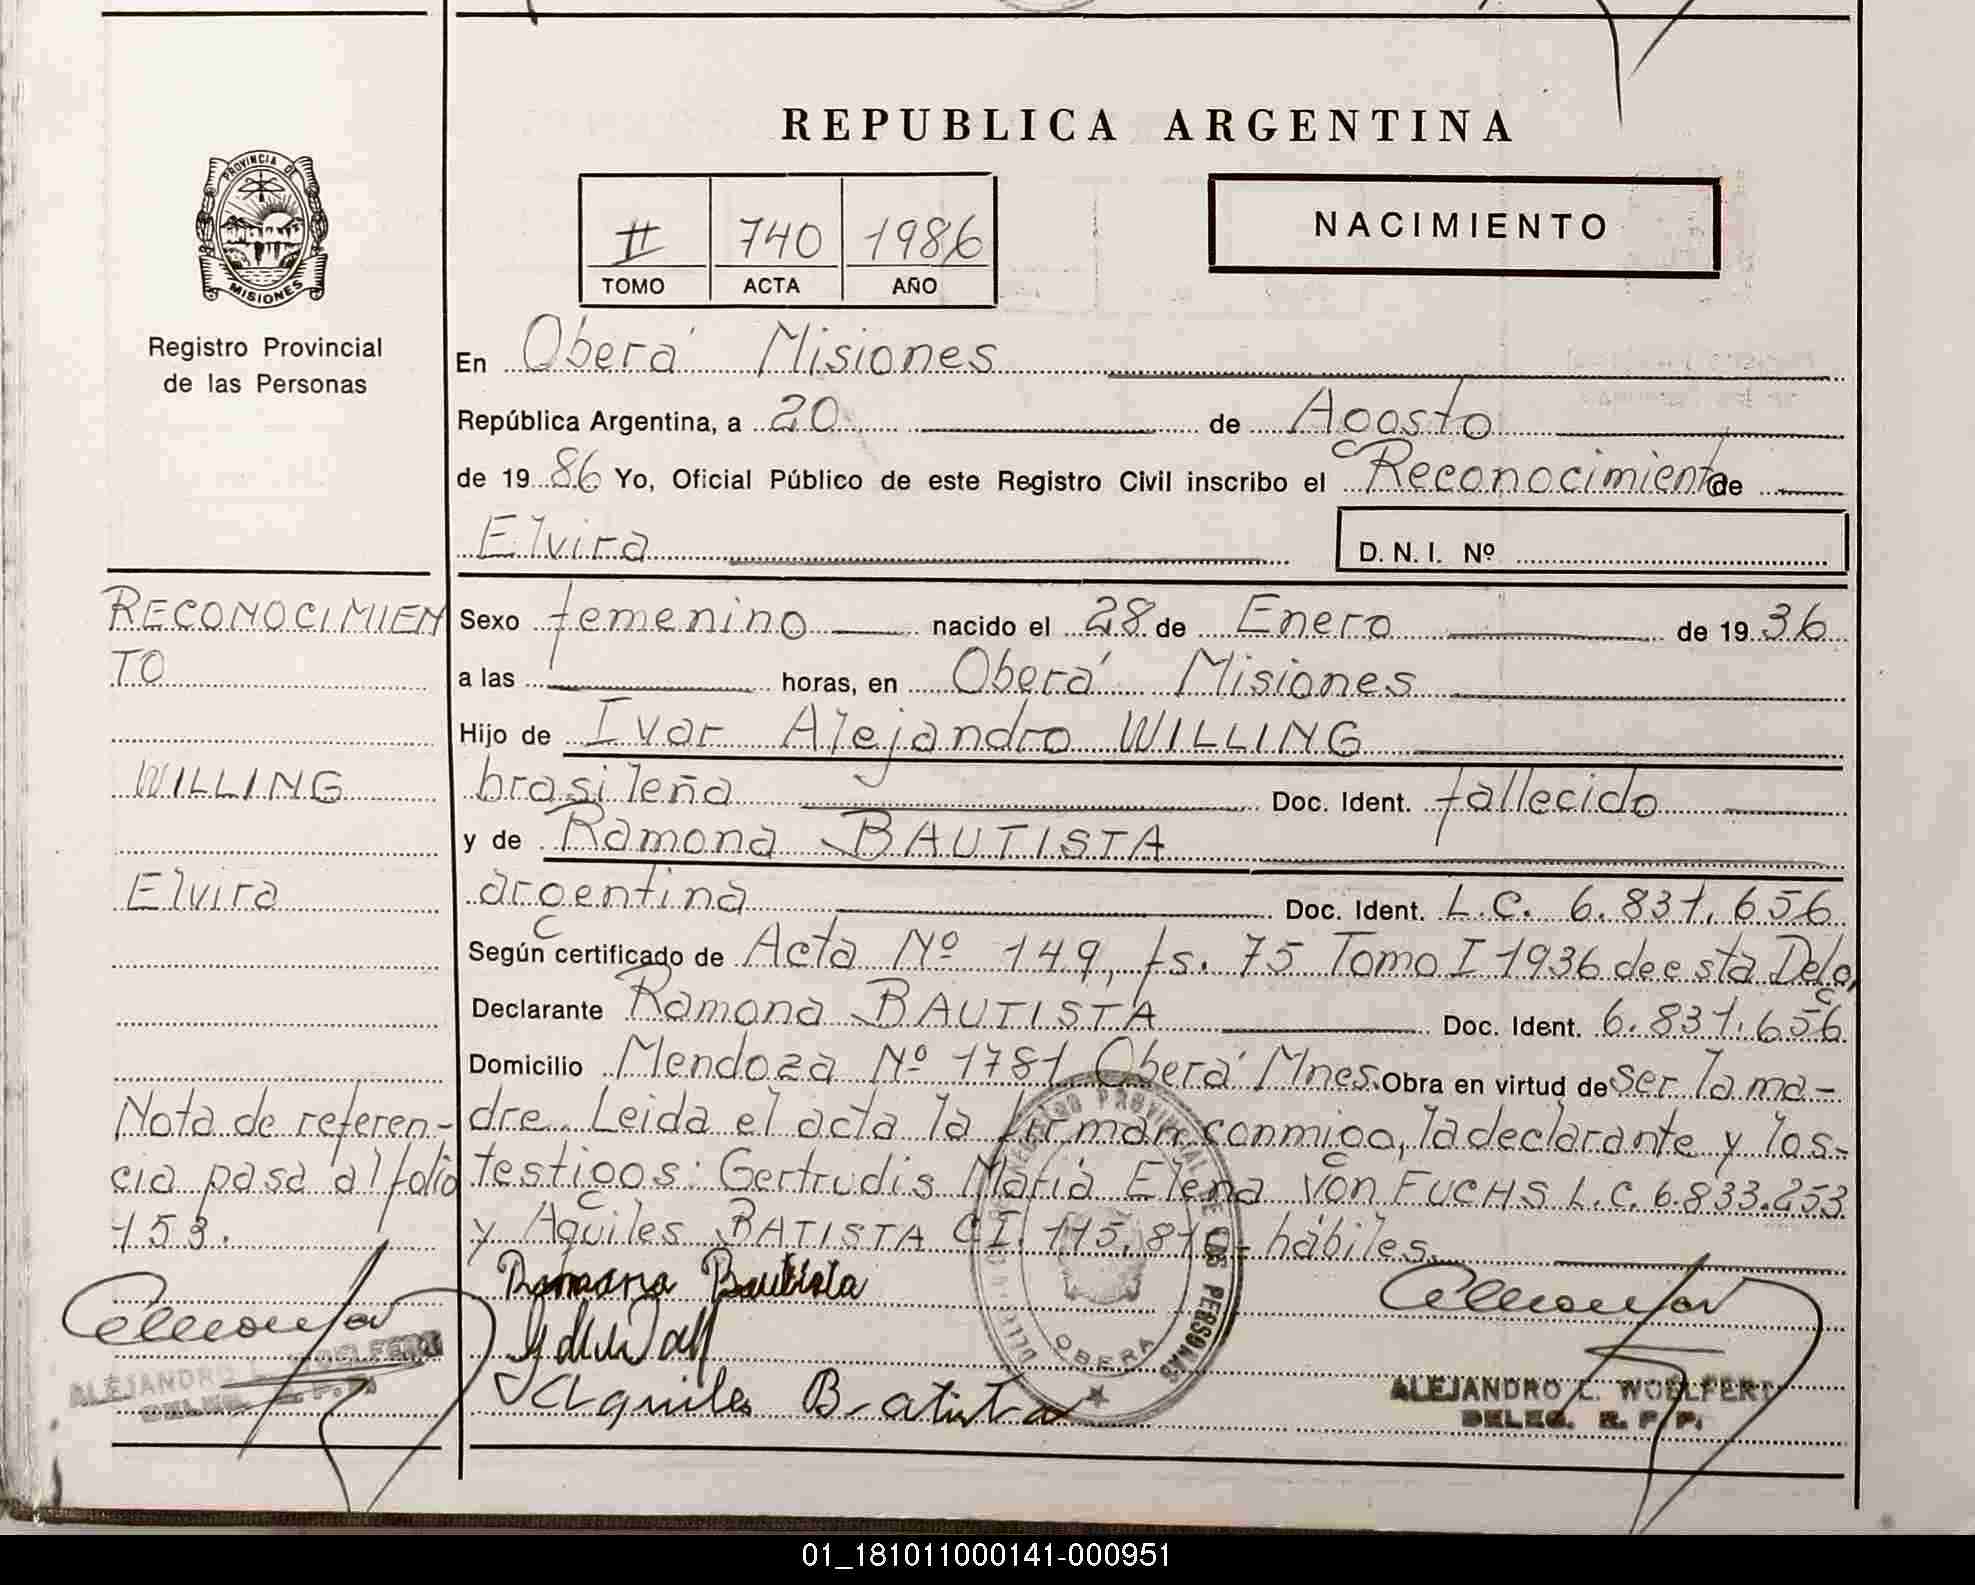 REPUBLICA ARGENTINA
PROVINCIA DE
MISIONES
Registro Provincial
de las Personas
II 740 1986
TOMO ACTA AÑO
NACIMIENTO
En Oberá Misiones
República Argentina, a 20 de Agosto
de 19 86 Yo, Oficial Público de este Registro Civil inscribo el Reconocimiento de
Elvira
D. N. I. Nº
RECONOCIMIEN
TO
WILLING
Elvira
Nota de referen-
cia pasa al folio
153.
ALEJANDRO L. WOELFERT
DELEG. R. P. P.
Sexo femenino nacido el 28 de Enero de 19 36
a las horas, en Oberá Misiones
Hijo de Ivar Alejandro WILLING
brasileña Doc. Ident. fallecido
y de Ramona BAUTISTA
argentina Doc. Ident. L.C. 6.831.656
Según certificado de Acta Nº 149, fs. 75 Tomo I 1936 de esta Deleg.
Declarante Ramona BAUTISTA Doc. Ident. 6.831.656
Domicilio Mendoza Nº 1781 Oberá Mnes. Obra en virtud de ser la ma-
dre. Leida el acta la firman conmigo, la declarante y los-
testigos: Gertrudis María Elena Von FUCHS L.C. 6.833.253
y Aquiles BATISTA C.I. 115.810- hábiles.
Ramona Bautista
Aquiles Batista
REGISTRO PROVINCIAL DE LAS PERSONAS
OBERA
ALEJANDRO L. WOELFERT
DELEG. R. P. P.
01_181011000141-000951